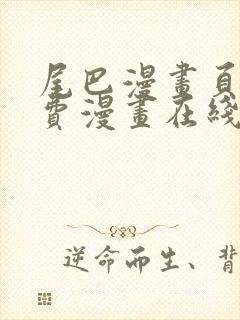 尾巴漫畫頁
費漫畫在綫
逆命而生、背